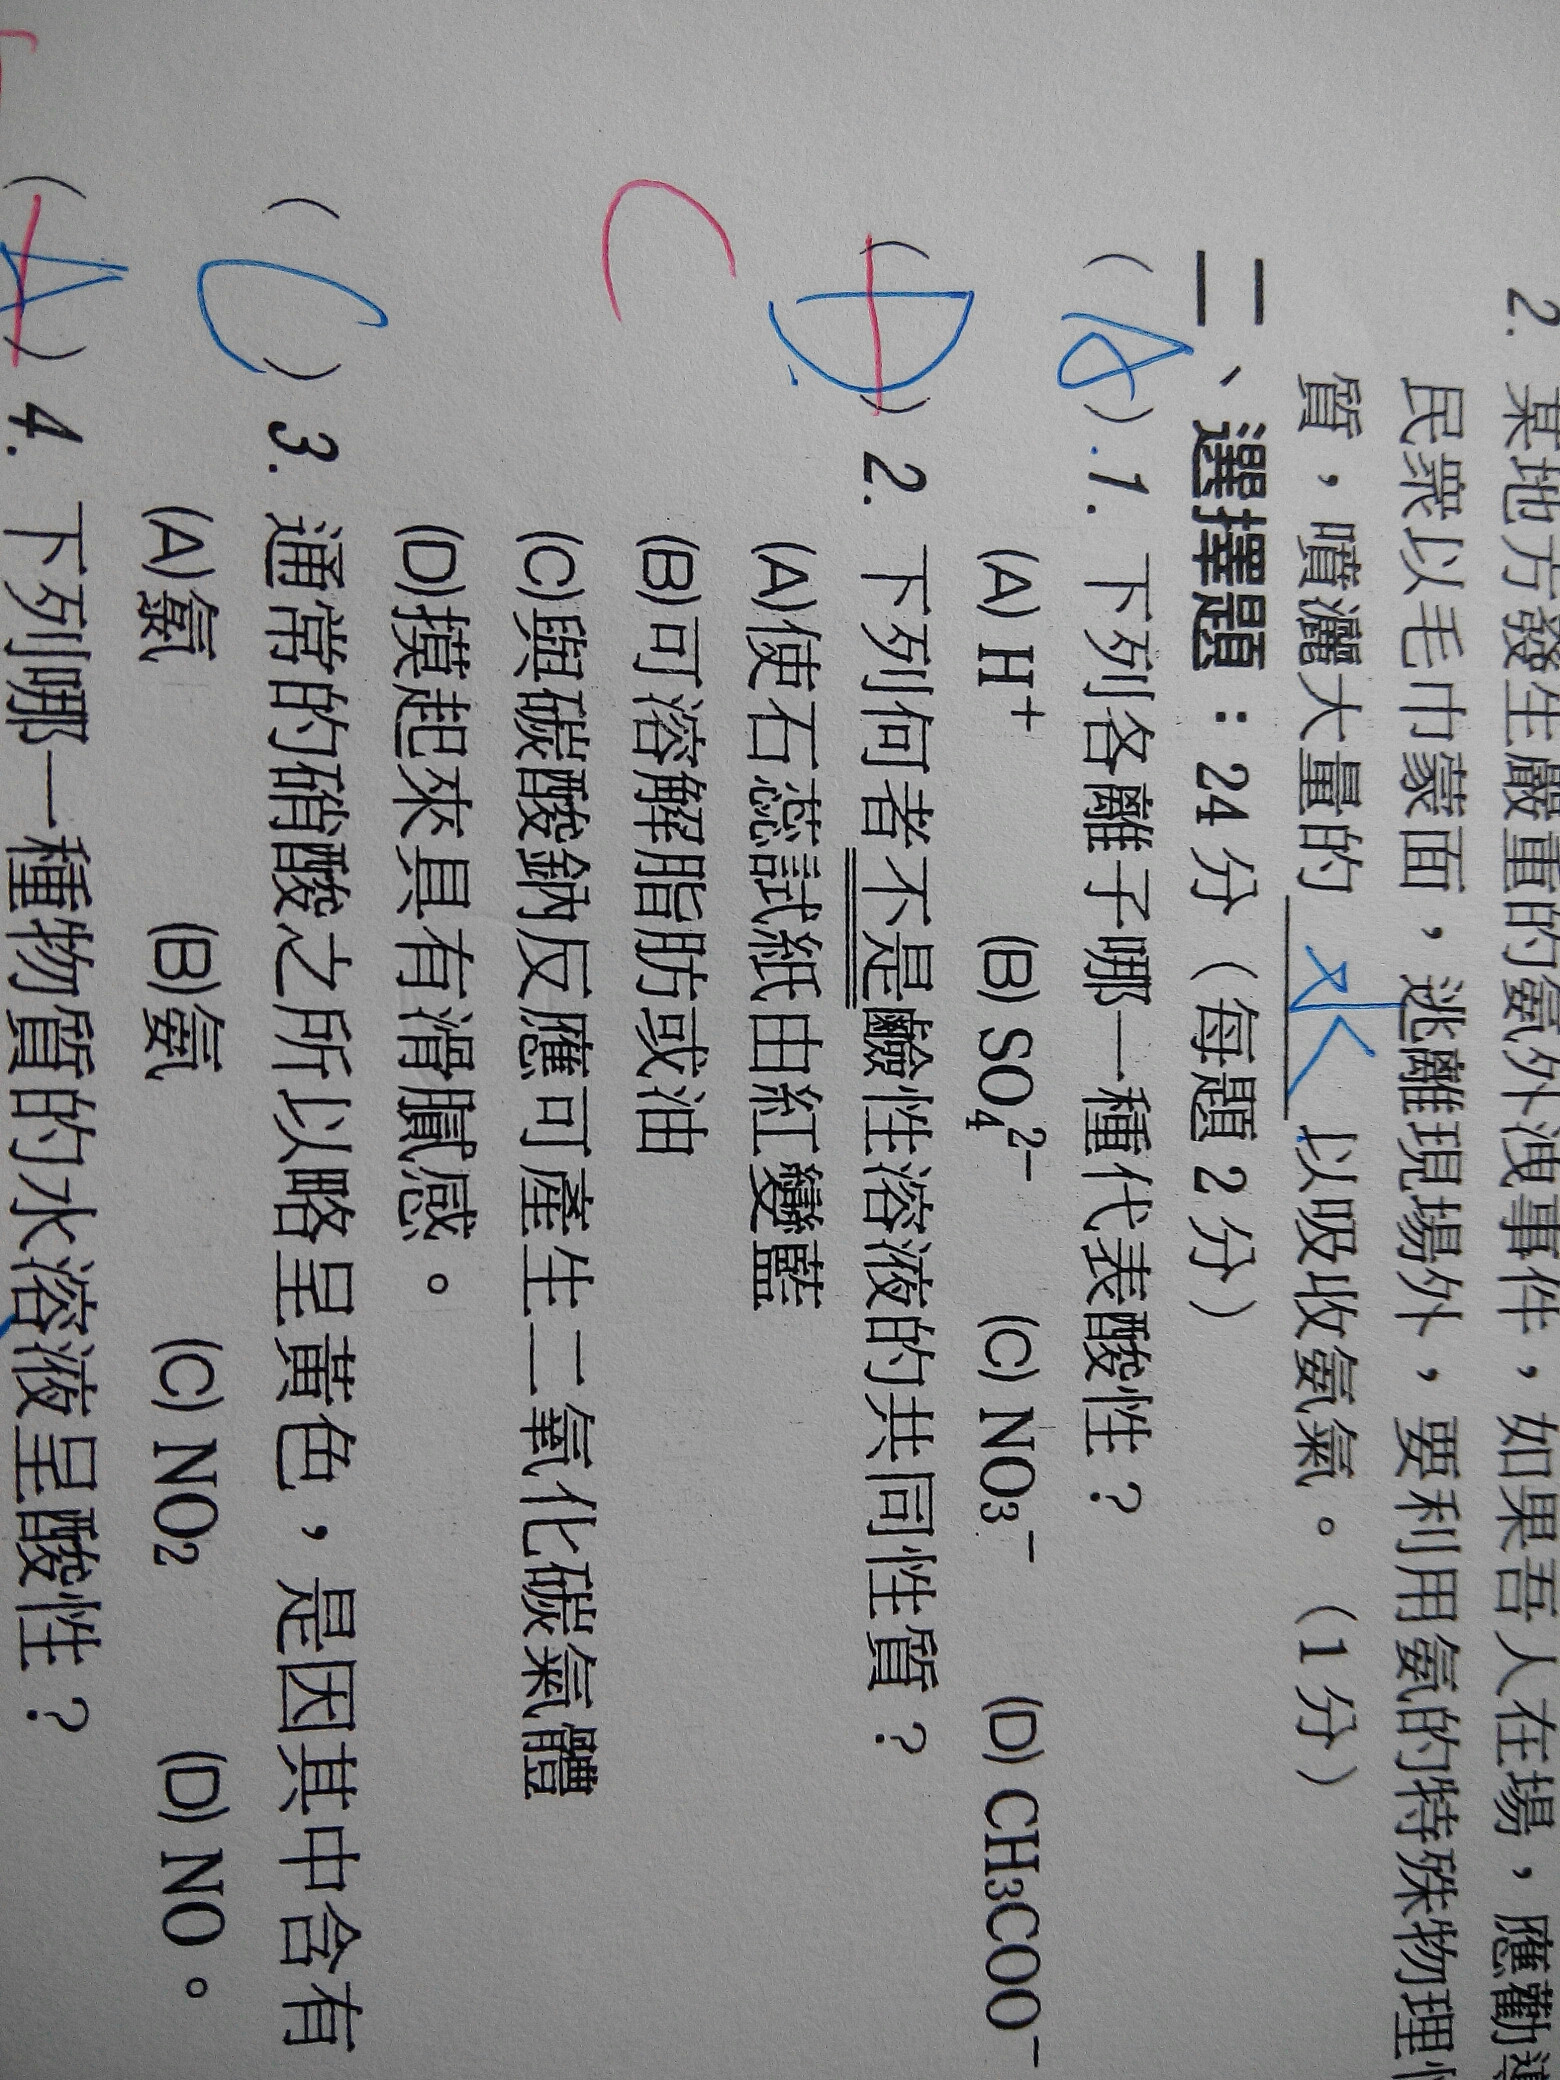 2. 某地方發生嚴重的氨外洩事件，如果吾人在場，應勸導
民眾以毛巾蒙面，逃離現場外，要利用氨的特殊物理性
質，噴灑大量的 水 以吸收氨氣。（1分）
二、選擇題：24分（每題2分）
(A).1. 下列各離子哪一種代表酸性？
(A) H⁺ (B) SO₄²⁻ (C) NO₃⁻ (D) CH₃COO⁻
(D) 2. 下列何者不是鹼性溶液的共同性質？
(A)使石蕊試紙由紅變藍
C
(B)可溶解脂肪或油
(C)與碳酸鈉反應可產生二氧化碳氣體
(D)摸起來具有滑膩感。
(C) 3. 通常的硝酸之所以略呈黃色，是因其中含有
(A)氯 (B)氨 (C) NO₂ (D) NO。
(A) 4. 下列哪一種物質的水溶液呈酸性？